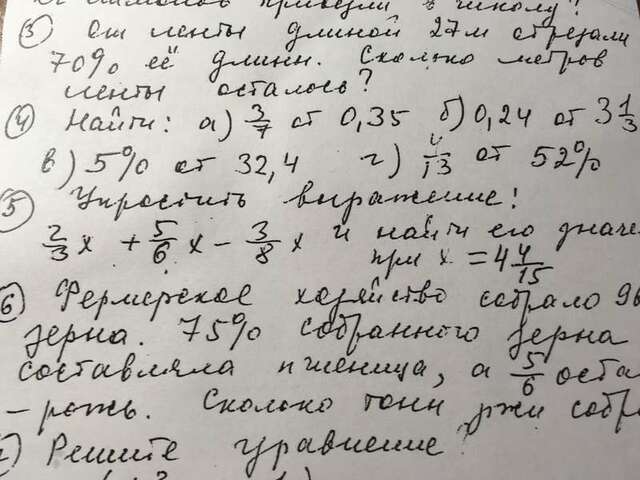 ③ От ленты длиной 24 м отрезали
70% её длины. Сколько метров
ленты осталось?
④ Найти: а) 3/7 от 0,35 б) 0,24 от 3 1/3
в) 5% от 32,4 г) 1/13 от 52%
⑤ Упростить выражение!
2/3 x + 5/6 x - 3/8 x и найти его значе
при x = 4 4/15
⑥ Фермерское хозяйство собрало
зерна. 75% собранного зерна
составляла пшеница, а 5/6 оста
- рожь. Сколько тонн ржи собр
Решите уравнение